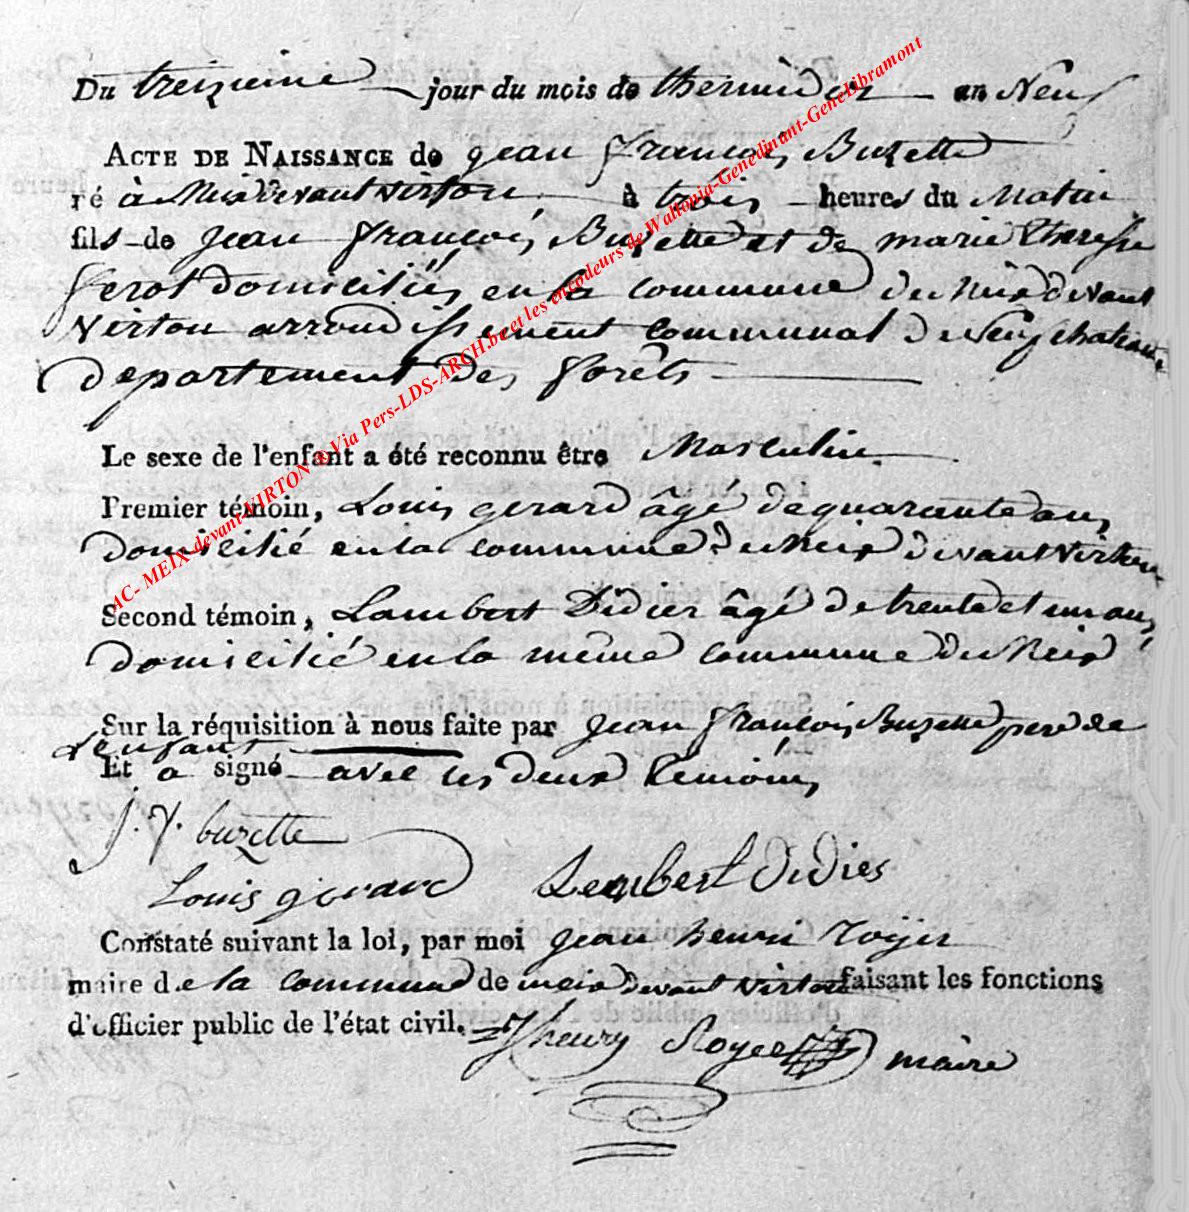 Du treizieme jour du mois de thermidor an Neuf
ACTE DE NAISSANCE de jean françois Buzette
né à Meix devant virton à trois heures du Matin
fils de jean françois Buzette et de marie therese
ferot domiciliés en la commune de Meix devant
virton arrondissement communal de Neufchateau
departement des forêts
Le sexe de l'enfant a été reconnu être Masculin
Premier témoin, Louis gerard âgé de quarante ans
domicilié en la commune de Meix devant virton
Second témoin, Lambert Didier âgé de trente et un ans
domicilié en la même commune de Meix
Sur la réquisition à nous faite par jean françois Buzette pere de
L'enfant
Et a signé avec les deux temoins
j. f. buzette
Louis gerard Lembert didier
Constaté suivant la loi, par moi jean henri Royer
maire de la commune de meix devant virton faisant les fonctions
d'officier public de l'état civil.
jhenry Royer maire
AC- MEIX-devant-VIRTON ® Via Pers-LDS-ARCH.be et les encodeurs de Wallonia-Genedinant-GeneLibramont